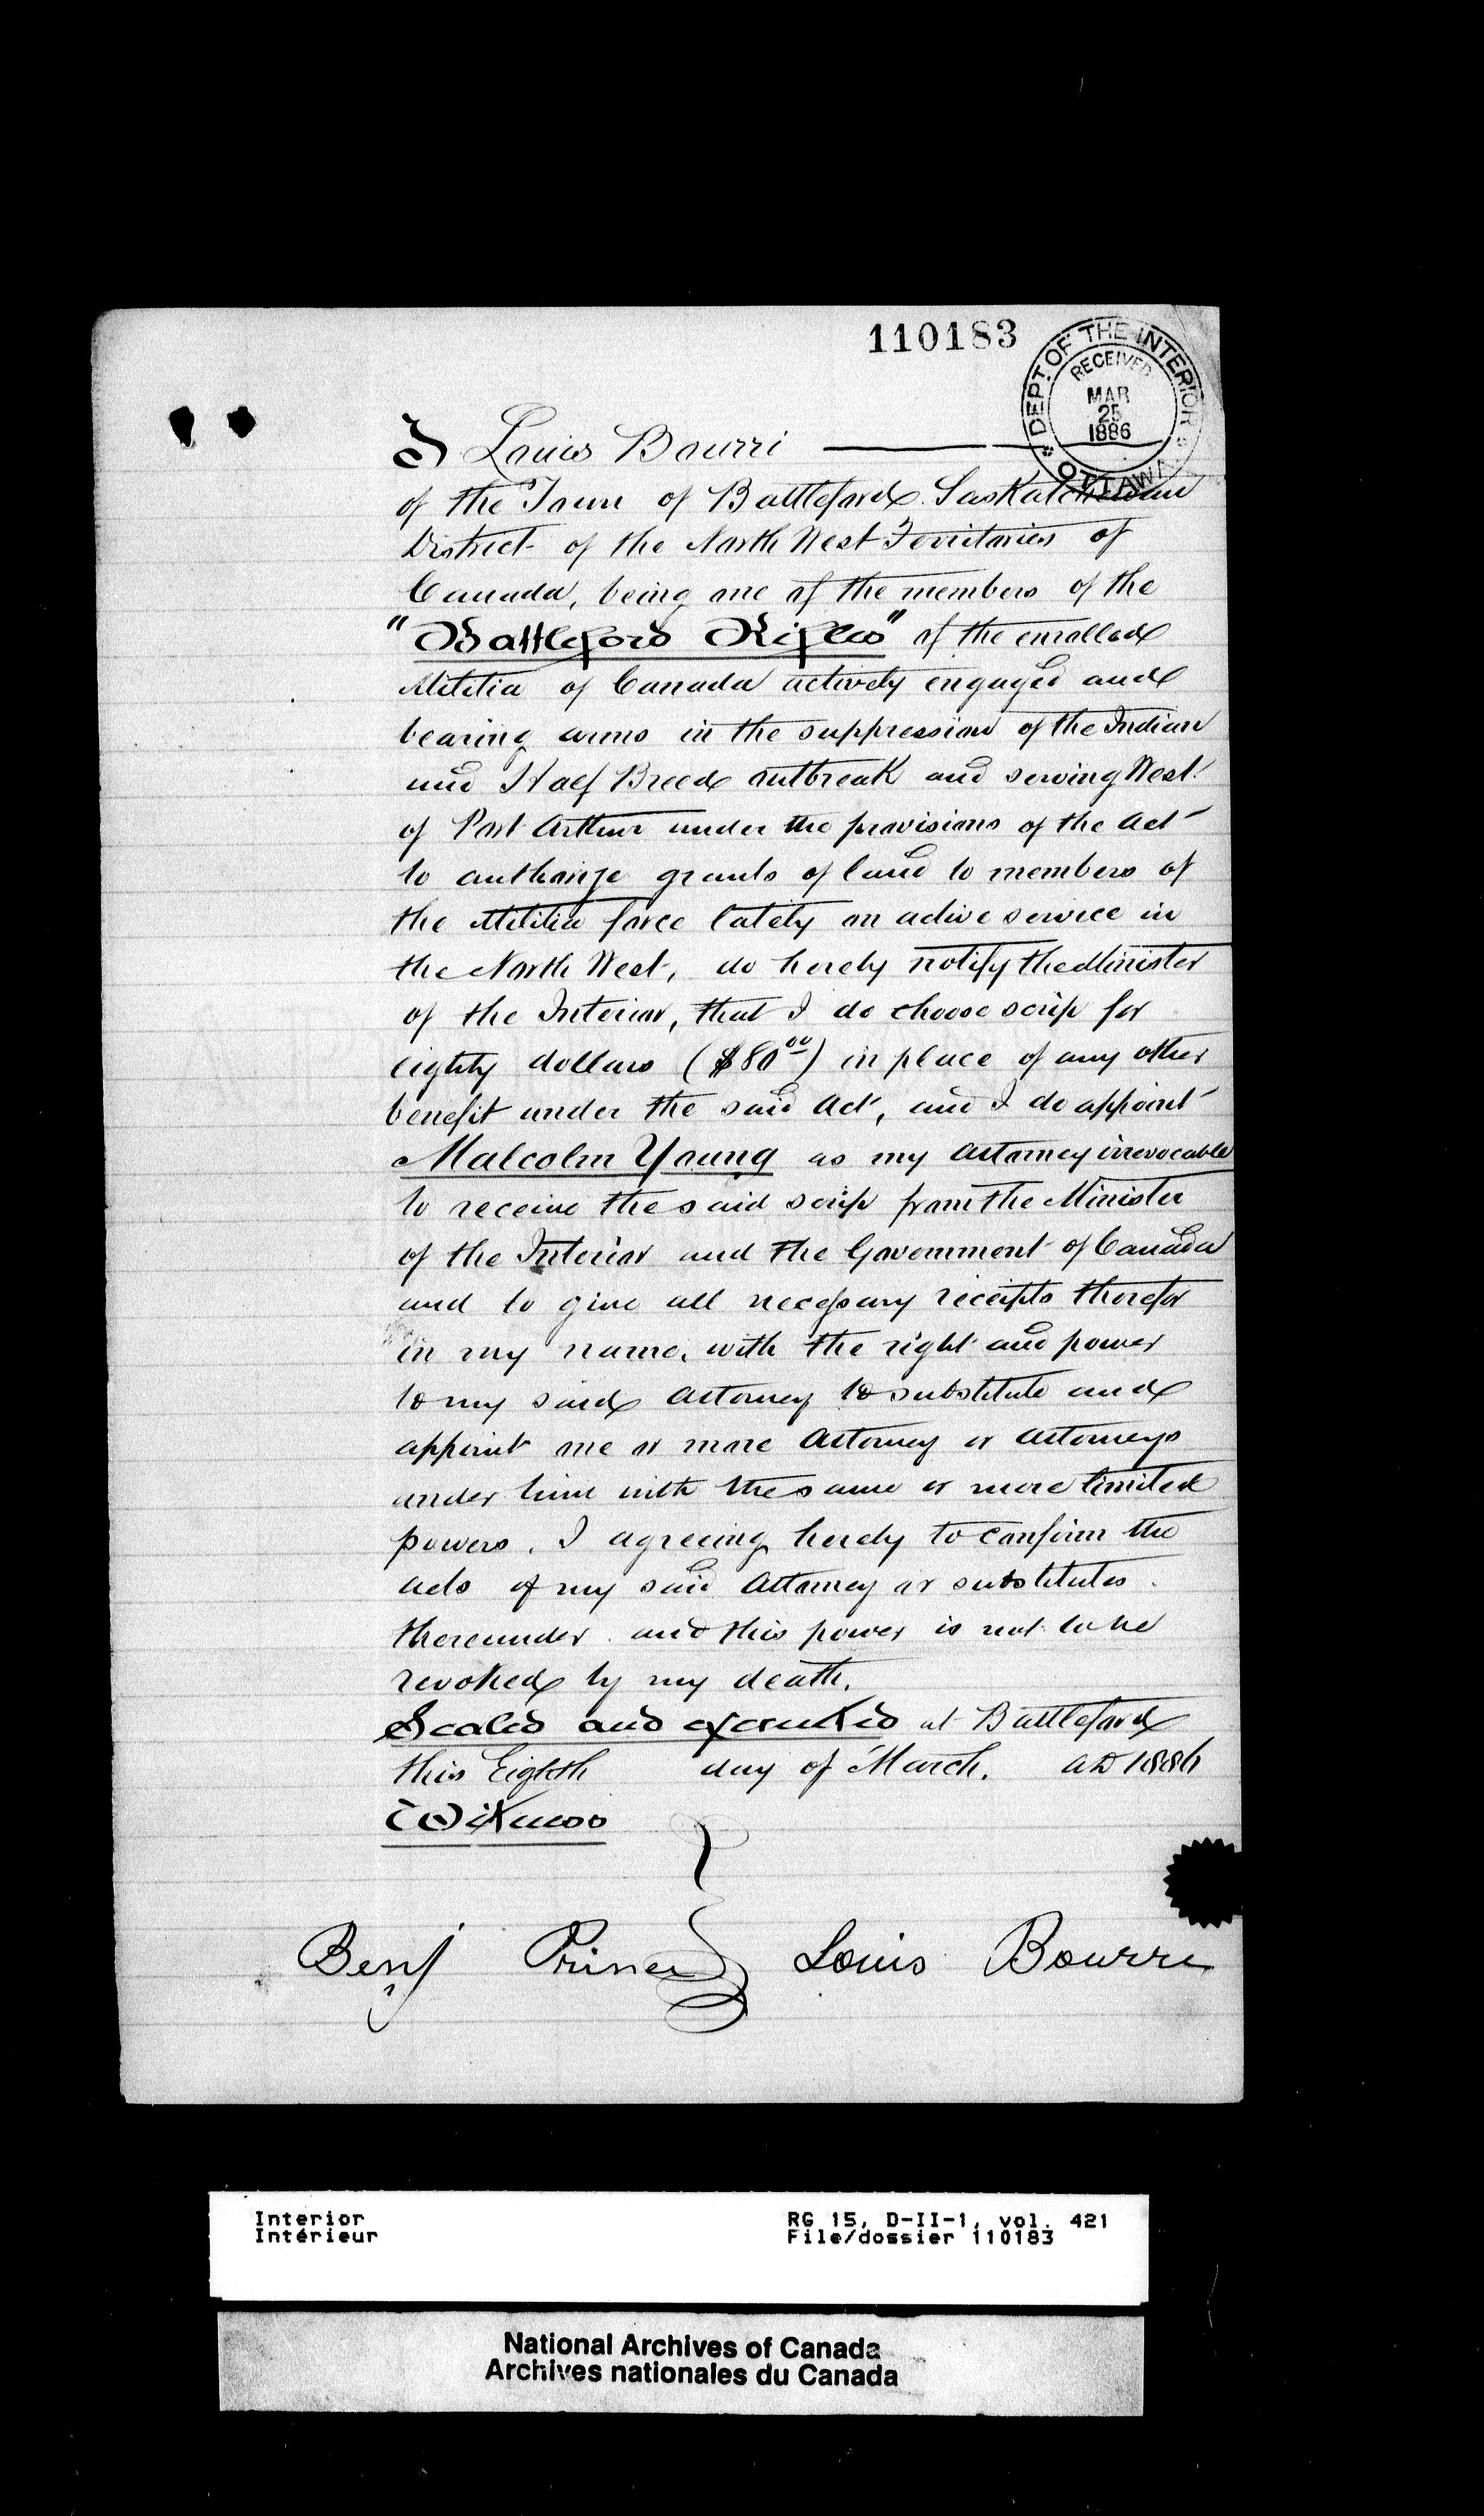 110183
DEPT. OF THE INTERIOR
RECEIVED
MAR
25
1886
OTTAWA
I Louis Bourri
of the Town of Battleford Saskatchewan
District of the North West Territories of
Canada, being one of the members of the
"Battleford Rifles" of the enrolled
Militia of Canada actively engaged and
bearing arms in the suppression of the Indian
and Half Breed outbreak and serving West
of Port Arthur under the provisions of the Act
to authorize grants of land to members of
the Militia force lately on active service in
the North West, do hereby notify the Minister
of the Interior, that I do choose scrip for
eighty dollars ($80.00) in place of any other
benefit under the said Act, and I do appoint
Malcolm Young as my Attorney irrevocable
to receive the said scrip from the Minister
of the Interior and the Government of Canada
and to give all necessary receipts therefor
in my name, with the right and power
to my said Attorney to substitute and
appoint one or more Attorney or Attorneys
under him with the same or more limited
powers. I agreeing hereby to confirm the
acts of my said Attorney or substitutes
thereunder and this power is not to be
revoked by my death.
Sealed and executed at Battleford
this Eighth day of March. AD 1886
Witness
Benj Prince Louis Bourre
Interior
Intérieur
RG 15, D-II-1, vol. 421
File/dossier 110183
National Archives of Canada
Archives nationales du Canada